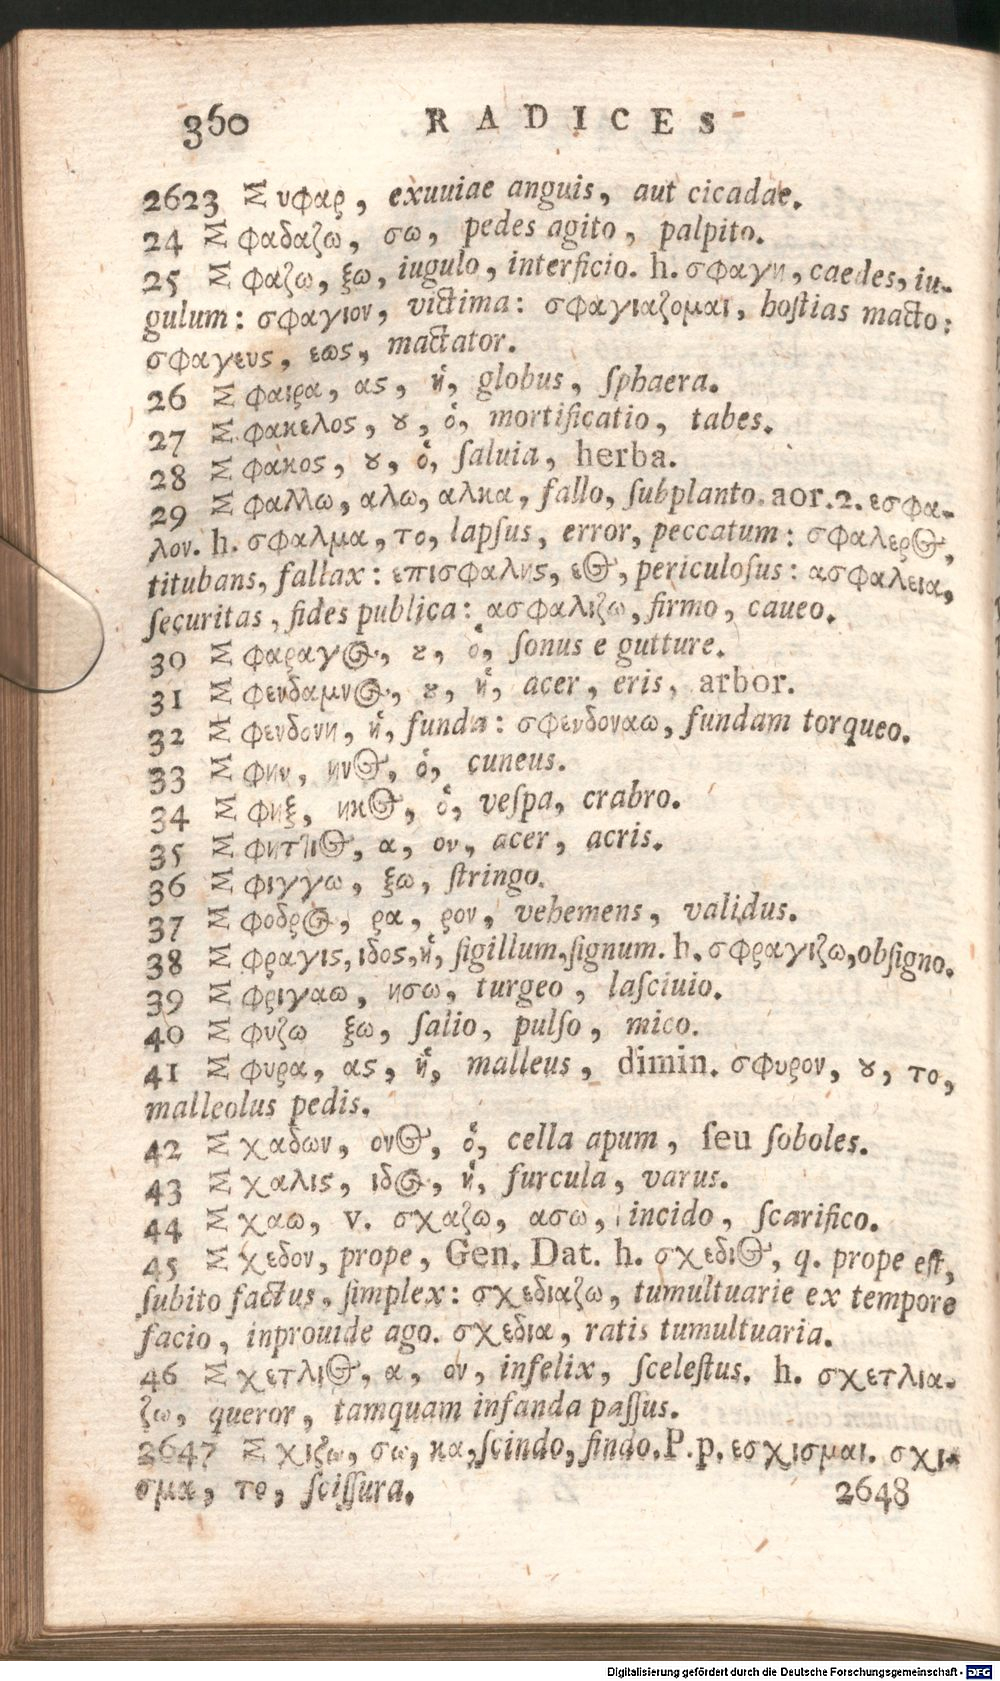 360 RADICES
2623 Συφαρ, exuuiae anguis, aut cicadae.
24 Σφαδαζω, σω, pedes agito, palpito.
25 Σφαζω, ξω, iugulo, interficio. h. σφαγη, caedes, iu-
gulum: σφαγιον, victima: σφαγιαζομαι, hoſtias macto:
σφαγευς, εως, mactator.
26 Σφαιρα, ας, ἡ, globus, ſphaera.
27 Σφακελος, ȣ, ὁ, mortificatio, tabes.
28 Σφακος, ȣ, ὁ, ſaluia, herba.
29 Σφαλλω, αλω, αλκα, fallo, ſubplanto. aor. 2. εσφα-
λον. h. σφαλμα, το, lapſus, error, peccatum: σφαλερος,
titubans, fallax: επισφαλης, εος, periculoſus: ασφαλεια,
ſecuritas, fides publica: ασφαλιζω, firmo, caueo.
30 Σφαραγος, ȣ, ὁ, ſonus e gutture.
31 Σφενδαμνος, ȣ, ἡ, acer, eris, arbor.
32 Σφενδονη, ἡ, funda: σφενδοναω, fundam torqueo.
33 Σφην, ηνος, ὁ, cuneus.
34 Σφηξ, ηκος, ὁ, veſpa, crabro.
35 Σφητηιος, α, ον, acer, acris.
36 Σφιγγω, ξω, ſtringo.
37 Σφοδρος, ρα, ρον, vehemens, validus.
38 Σφραγις, ιδος, ἡ, ſigillum, ſignum. h. σφραγιζω, obſigno.
39 Σφριγαω, ησω, turgeo, laſciuio.
40 Σφυζω ξω, ſalio, pulſo, mico.
41 Σφυρα, ας, ἡ, malleus, dimin. σφυρον, ȣ, το,
malleolus pedis.
42 Σχαδων, ονος, ὁ, cella apum, ſeu ſoboles.
43 Σχαλις, ιδος, ἡ, furcula, varus.
44 Σχαω, v. σχαζω, ασω, incido, ſcarifico.
45 Σχεδον, prope, Gen. Dat. h. σχεδιος, q. prope eſt,
ſubito factus, ſimplex: σχεδιαζω, tumultuarie ex tempore
facio, inprouide ago. σχεδια, ratis tumultuaria.
46 Σχετλιος, α, ον, infelix, ſceleſtus. h. σχετλια-
ζω, queror, tamquam infanda paſſus.
2647 Σχιζω, σω, κα, ſcindo, findo. P. p. εσχισμαι. σχι-
σμα, το, ſciſſura.
2648
Digitalisierung gefördert durch die Deutsche Forschungsgemeinschaft - DFG